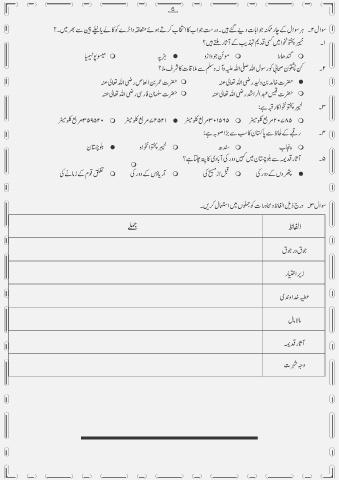 ۵
سوال ۲۔ ہر سوال کے چار ممکنہ جوابات دیے گئے ہیں۔ درست جواب کا انتخاب کرتے ہوئے متعلقہ دائرے کو کالے یا نیلے پین سے بھریں۔
۱۔ خیبر پختونخوا میں کس قدیم تہذیب کے آثار ملتے ہیں؟
گندھارا موئن جو داڑو ہڑپہ میسوپوٹیمیا
۲۔ کن پختون صحابی کو رسول اللہ صلی اللہ علیہ وآلہ وسلم سے ملاقات کا شرف ملا؟
حضرت خالد بن ولید رضی اللہ تعالیٰ عنہ حضرت عمرو بن العاص رضی اللہ تعالیٰ عنہ
حضرت قیس عبدالرشید رضی اللہ تعالیٰ عنہ حضرت سلمان فارسی رضی اللہ تعالیٰ عنہ
۳۔ خیبر پختونخوا کا رقبہ ہے:
مربع کلومیٹر مربع کلومیٹر مربع کلومیٹر مربع کلومیٹر
۴۔ رقبے کے لحاظ سے پاکستان کا سب سے بڑا صوبہ ہے:
پنجاب سندھ خیبر پختونخواہ بلوچستان
۵۔ آثار قدیمہ سے بلوچستان میں کس دور کی آبادی کا پتہ چلتا ہے؟
پتھروں کے دور کی قبل از مسیح کی آریاؤں کے دور کی قوم کے زمانے کی
سوال ۳۔ درج ذیل الفاظ و محاورات کو جملوں میں استعمال کریں۔
الفاظ جملے
جوق در جوق
زیر اختیار
عطیہ خداوندی
مالا مال
آثار قدیمہ
وجہ شہرت